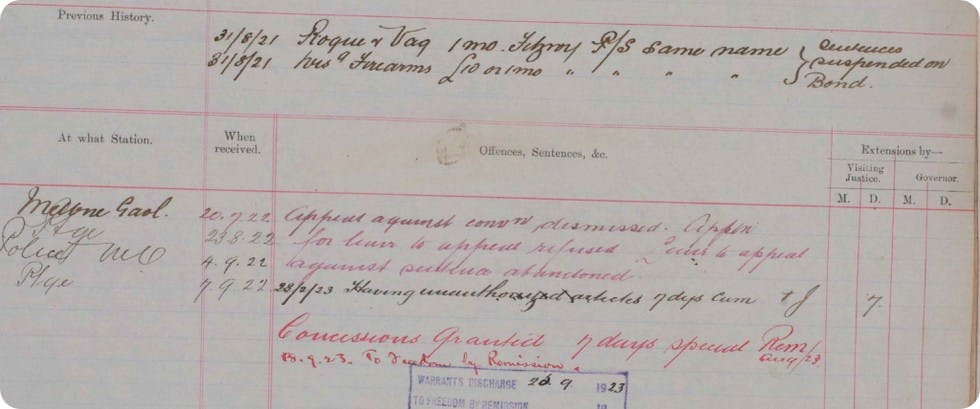 Previous History.
31/8/21 Rogue & Vag 1 mo. Fitzroy P/S same name } Sentences
31/8/21 Firearms £10 or 1 mo " " " " } suspended on
Bond.
At what Station. When received. Offences, Sentences, &c. Extensions by—
Visiting Justice. Governor.
M. D. M. D.
Gaol. 20.7.22 Appeal against convn dismissed. Appn
Ptge 23.8.22 for leave to appeal refused. Leave to appeal
Police 4.9.22 against sentence abandoned.
Ptge 7.9.22 28/2/23 Having unauthorized articles 7 dys cum 7.
Concessions Granted 7 days special Rem/
Aug/23
.9.23. To Freedom by Remission.
WARRANTS DISCHARGE 9 1923
TO FREEDOM BY REMISSION 19